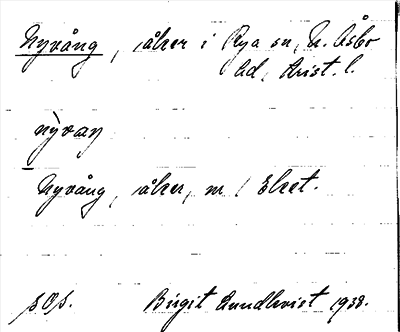 Nyvång, åker i Rya sn, N. Åsbo
hd, Krist. l.
nỳvaŋ
Nyvång, åker, nu / Elset.
sOs. Birgit Lundkvist 1938.